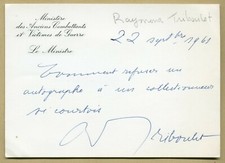 Ministère
des Anciens Combattants
et Victimes de Guerre
Le Ministre
Raymond Triboulet
22 septbre 1961
Comment refuser un
autographe à un collectionneur
si courtois
Triboulet